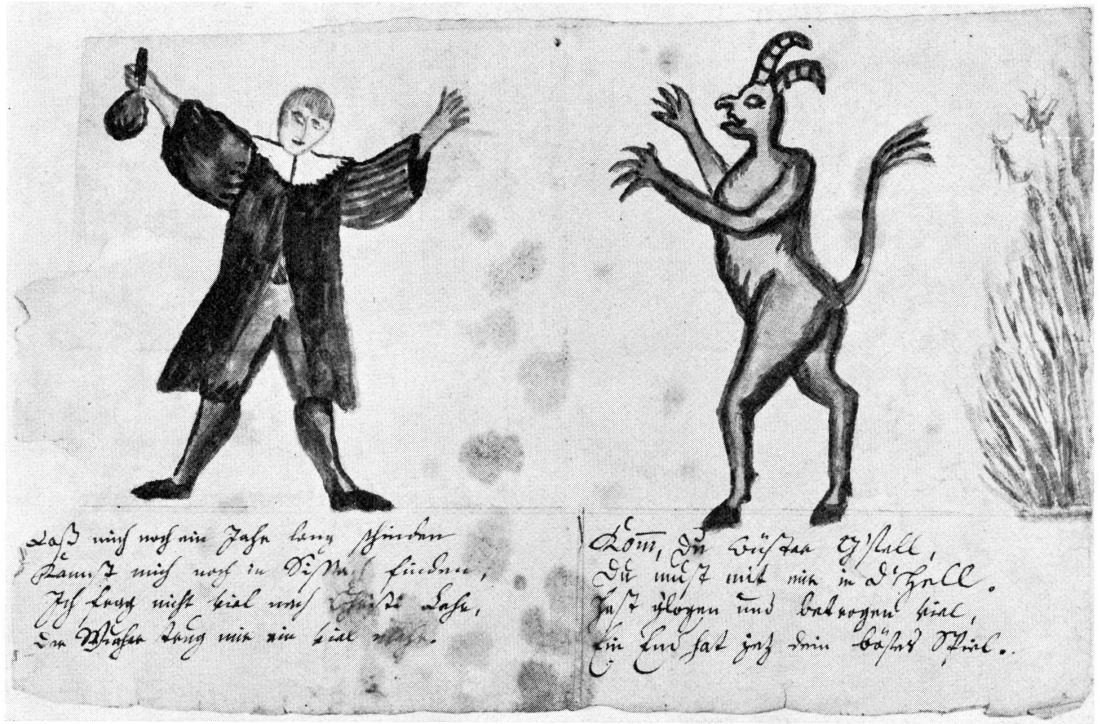 Laß mich noch ein Jahr lang schinden
Kannst mich noch in Sissach finden,
Ich frag nicht viel nach Christi Lehr,
Der Wucher trug mir ein viel mehr.
Kom̄, du wüster G'sell,
Du must mit mir in d'Hell.
Hast glogen und betrogen viel,
Ein End hat jez dein böses Spiel.